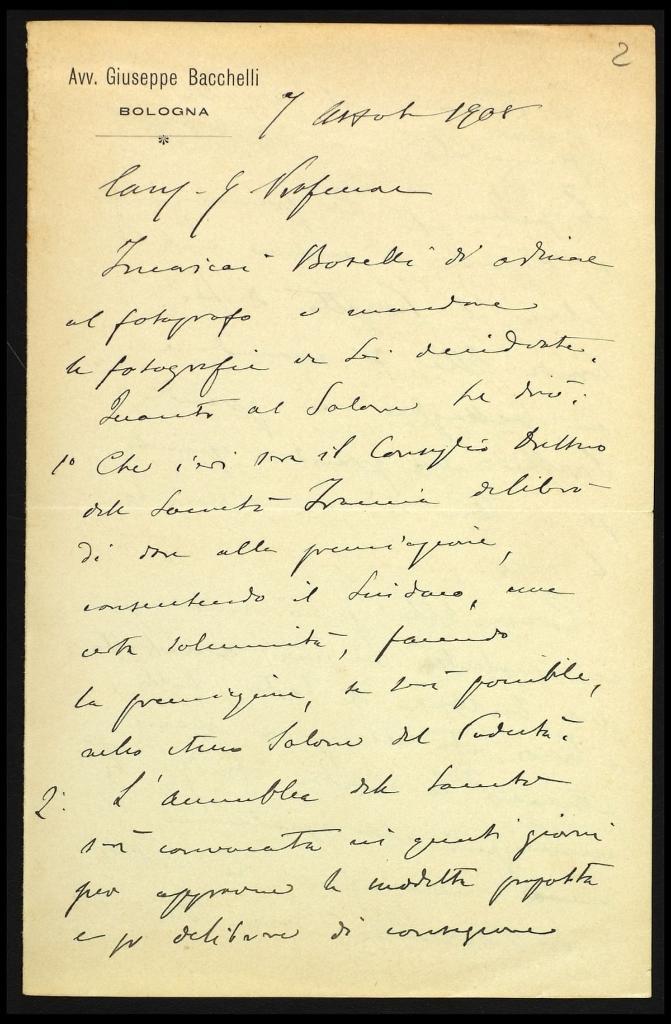 2
Avv. Giuseppe Bacchelli
BOLOGNA
7 1908
Incaricai Borelli di ordinare
al fotografo e mandare
le fotografie da Lei desiderate.
Quanto al Salone le dirò:
1° Che ieri sera il Consiglio Direttivo
della Società Francesco deliberò
di dare alla premiazione,
consentendo il Sindaco, una
certa solennità, facendo
la premiazione, se sarà possibile,
nello stesso Salone del Podestà.
2° L'assemblea della Società
sarà convocata in questi giorni
per approvare la suddetta proposta
e per deliberare di consegnare